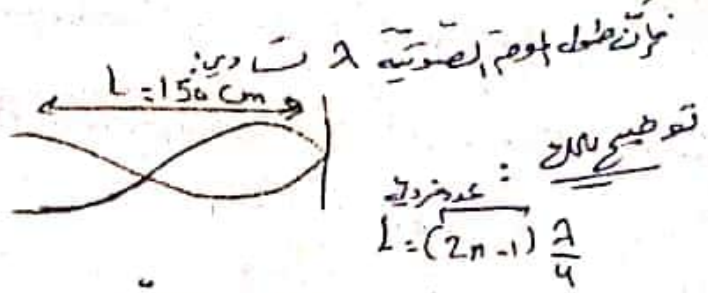 فإن طول الموجة الصوتية λ تساوي:
L = 150 cm
توضيح للحل :
عدد فردي
L = (2n - 1) λ/4